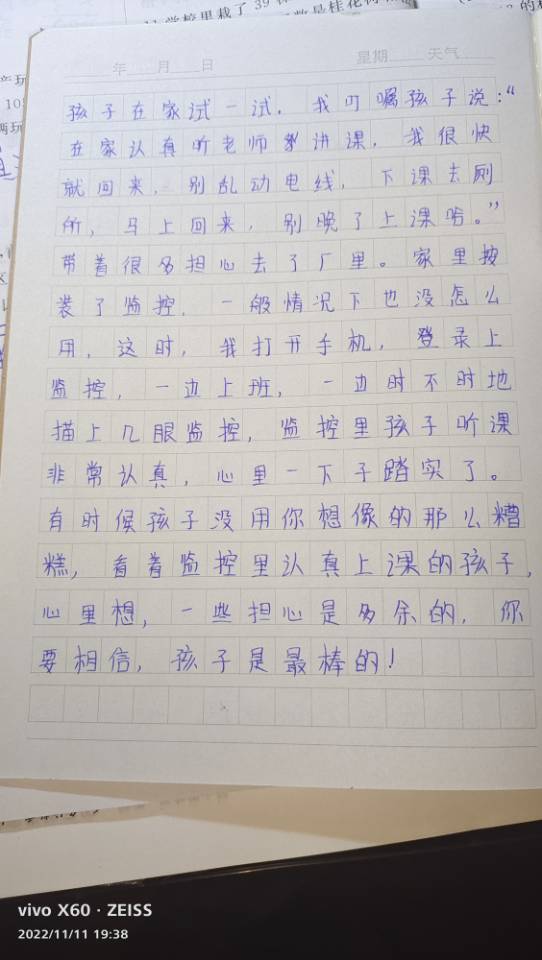 学校里栽了39
是桂花树
产玩
10
年 月 日 星期 天气
孩子在家试一试，我叮嘱孩子说：“
在家认真听老师讲课，我很快
就回来，别乱动电线，下课去厕
所，马上回来，别晚了上课哈。”
带着很多担心去了厂里。家里按
装了监控，一般情况下也没怎么
用，这时，我打开手机，登录上
监控，一边上班，一边时不时地
描上几眼监控，监控里孩子听课
非常认真，心里一下子踏实了。
有时候孩子没用你想像的那么糟
糕，看着监控里认真上课的孩子，
心里想，一些担心是多余的，你
要相信，孩子是最棒的！
vivo X60 · ZEISS
2022/11/11 19:38